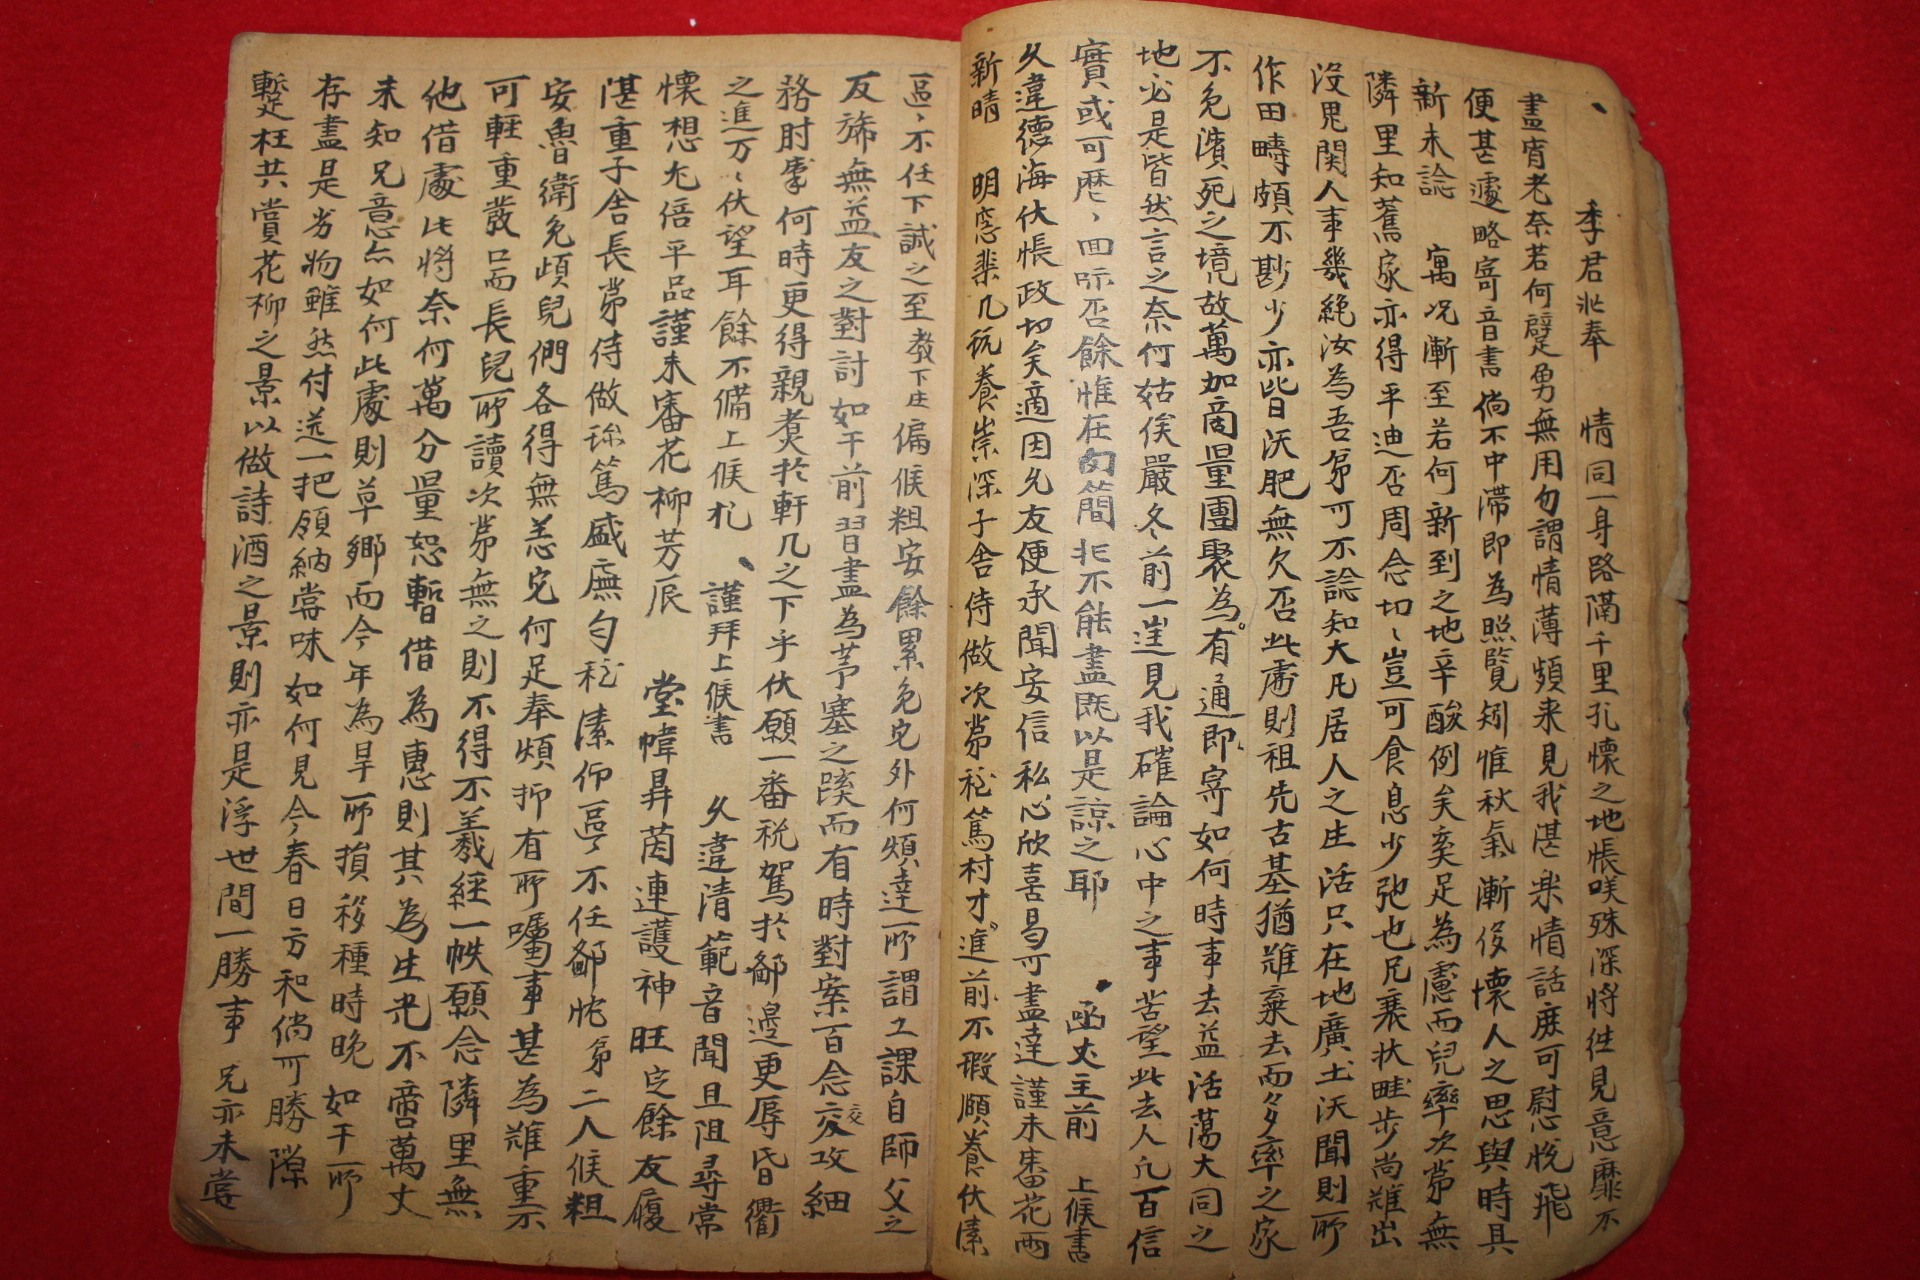 季君必奉 情同一身路隔千里孔懷之地悵咲殊深將徃見意靡不
盡宵老奈若何躄勇無用勿謂情薄頻来見我湛楽情話庶可慰悅飛
便甚遽略寄音書倘不中滯即為照覽矧惟秋氣漸㑴懷人之思與時具
新未諗 寓况漸至若何新到之地辛酸例矣奚足為慮而兒率次第無
隣里知舊家亦得平迪否周念切〻豈可食息少弛也兄衰狀畦步尚難出
没罕関人事幾絶汝為吾弟可不諗知大凡居人之生活只在地廣土沃聞則所
作田疇頗不尠少亦皆沃肥無欠否此處則祖先古基猶難棄去而多率之家
不免濱死之境故萬加商量團聚為有通即寄如何時事去益活蕩大同之
地必是皆然言之奈何姑俟嚴冬前一进見我確論心中之事苦望此去人凢百信
實或可歴〻回示否餘惟在勾簡北不能盡既以是諒之耶
函丈主前 上候書
久違德海伏悵政切矣適因允友便承聞安信私心欣喜曷可盡達謹未審花雨
新晴 明窓棐几玩養崇深子舍侍做次第穏篤村才進前不瑕願養伏溸
區〻不任下誠之至教下生偏候粗安餘累免宅外何煩達所謂工課自師父之
友旆無益友之對討如干前習盡為茅塞之蹊而有時對案百念交攻細
務肘掣何時更得親炙於軒几之下乎伏願一番税駕於鄙邊更辱昏衢
之進万〻伏望耳餘不備上候札
謹拜上候書 久違清範音聞且阻尋常
懷想尢倍平品謹未審花柳芳辰 堂幃曻茵連護神旺定餘友履
湛重子舍長第侍做珎篤盛廡匀穏溸仰區〻不任鄙忱弟二人候粗
安魯衛免頉兒們各得無恙宅何足奉煩抑有所囑事甚為難重示
可輕重發口而長兒所讀次第無之則不得不羲經一帙願念隣里無
他借處此將奈何萬分量恕暫借為惠則其為生光不啻萬丈
未知兄意亦如何此處則草鄉而今年為旱所損移種時晩如干所
存盡是劣物雖然付送一把領納嘗味如何見今春日方和倘可勝際
蹔枉共賞花柳之景以做詩酒之景則亦是浮世間一勝事 兄亦未嘗